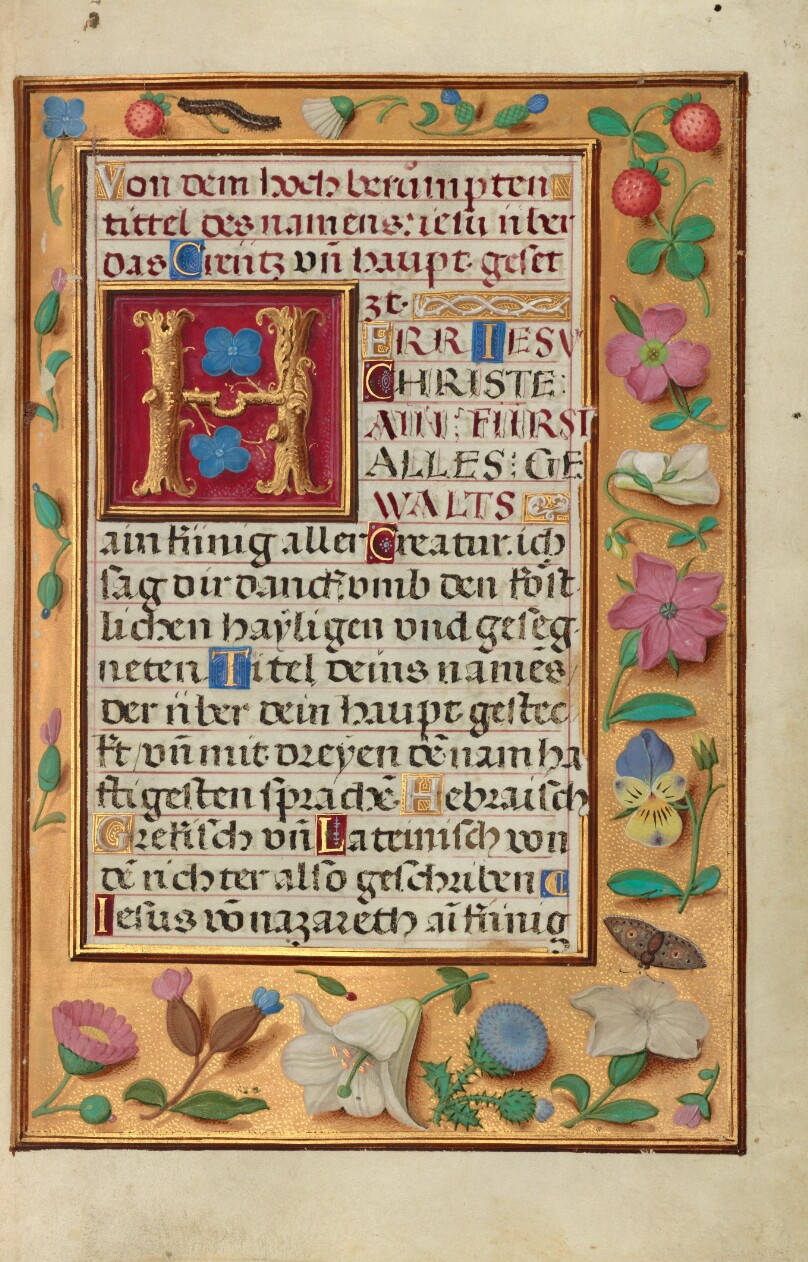 Von dem hoch berümpten
tittel des namens: iesu über
das Creütz vn̄ haupt geset
zt.
HERR IESV
CHRISTE:
AIN FÜRST
ALLES: GE
WALTS
ain künig aller Creatur. ich
sag dir danck vmb den köst
lichen hayligen vnd geseg
neten Titel deins namēs
der über dein haupt gestec
kt / vn̄ mit dreyen dē nam ha
ftigesten sprachē Hebraisch
Grekisch vn̄ Lateinisch von
dē richter also geschriben
Iesus vō nazareth aī künig